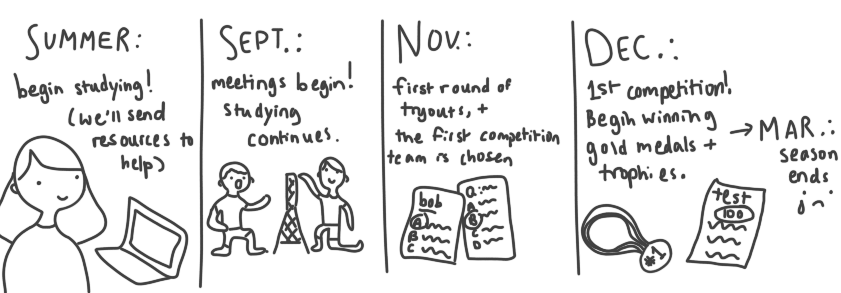 SUMMER:
begin studying!
(we'll send
resources to
help)
SEPT.:
meetings begin!
studying
continues.
NOV.:
first round of
tryouts, +
the first competition
team is chosen
bob
A
B
C
Q:
A
B
C
D
DEC.:
1st competition!
Begin winning
gold medals +
trophies.
#1
test
100
→ MAR.:
season
ends
: